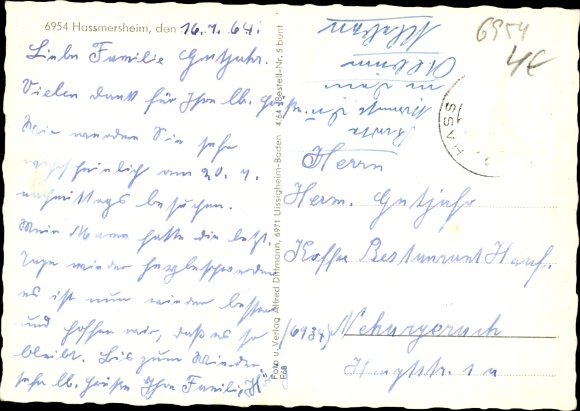 6954 Hassmersheim, den 16.9.64.
Liebe Familie Gutjahr.
Vielen dank für Ihre lb. Grüße.
Wir werden Sie sehr
wahrscheinlich am 20. 9.
nachmittags besuchen.
Mein Mann hatte die letzt.
Tage wieder herzbeschwerden
es ist nun wieder besser
und hoffen wir, daß es so
bleibt. Bis zum Wieder-
sehn lb. Grüßen Ihre Familie
Foto u. Verlag Alfred Dittmann, 6971 Uissigheim-Baden 4/64 Bestell-Nr. 5 bunt
E68
6954
4€
HASS
Herrn
Herm. Gutjahr
Kaffee Restaurant Hauf.
(6934) Neckargerach
Hauptstr. 1a